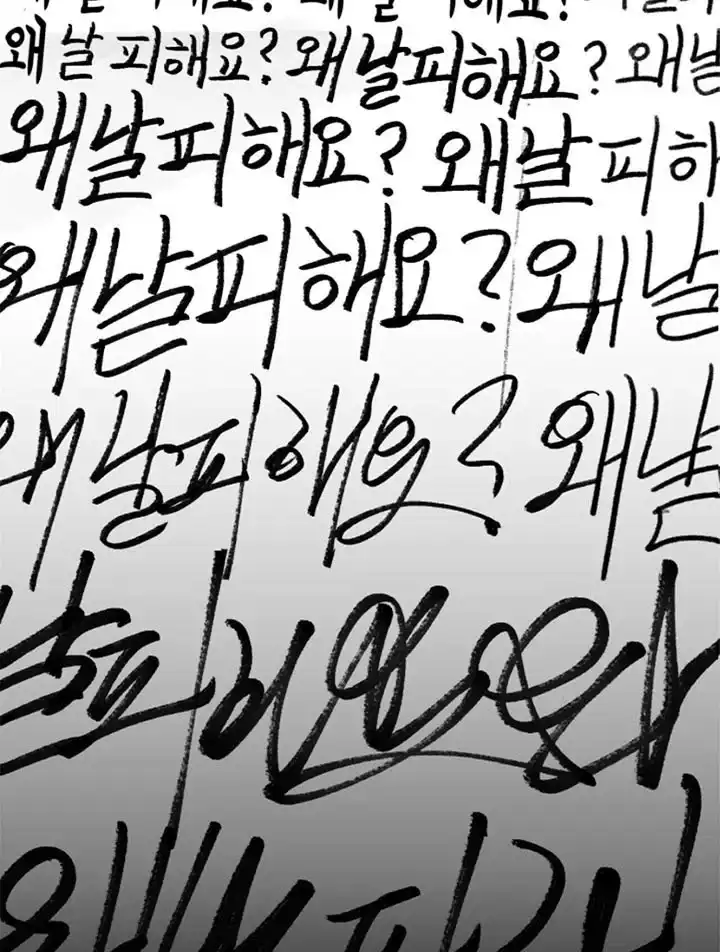 왜 날 피해요?
왜 날 피해요? 왜 날 피해요? 왜 날
왜 날 피해요? 왜 날 피하
왜 날 피해요? 왜 날
왜 날 피해요? 왜 날
날 피해요
왜 날 피